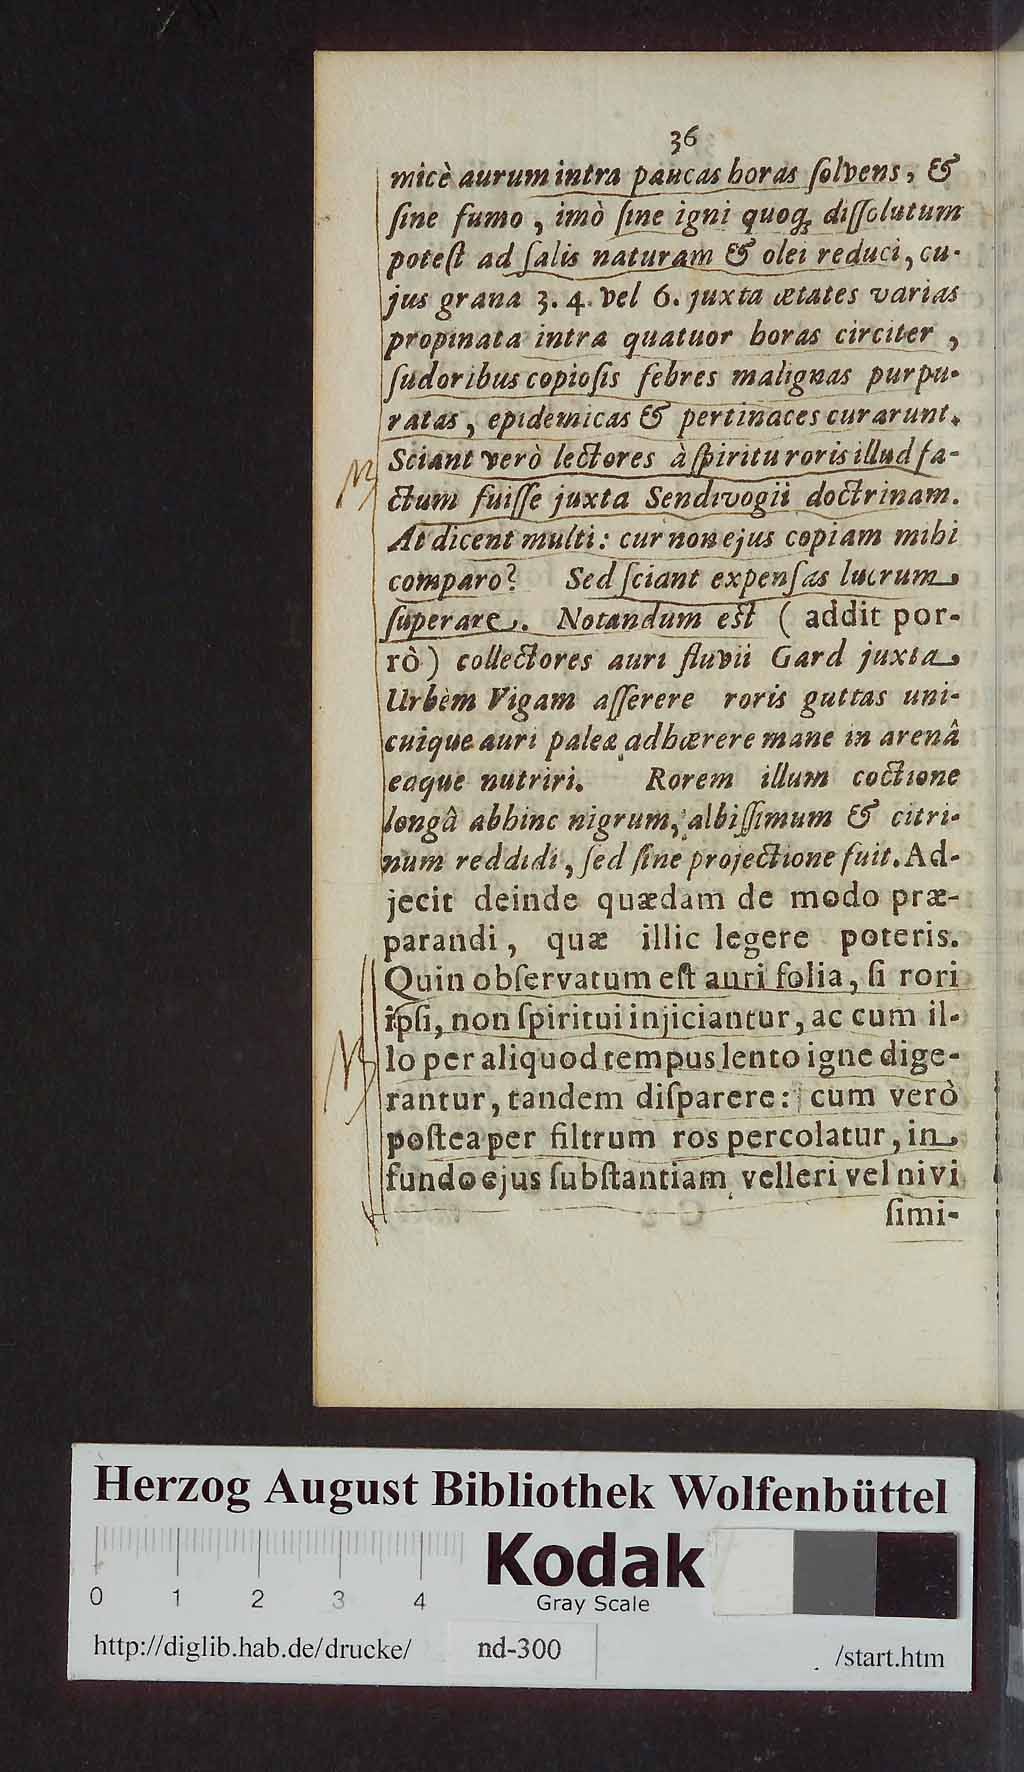 36
micè aurum intra paucas horas ſolvens, &
ſine fumo, imò ſine igni quoq; diſſolutum
poteſt ad ſalis naturam & olei reduci, cu-
jus grana 3. 4. vel 6. juxta ætates varias
propinata intra quatuor horas circiter,
ſudoribus copioſis febres malignas purpu-
ratas, epidemicas & pertinaces curarunt.
Sciant verò lectores à ſpiritu roris illud fa-
NB
ctum fuiſſe juxta Sendivogii doctrinam.
At dicent multi: cur non ejus copiam mihi
comparo? Sed ſciant expenſas lucrum
ſuperare. Notandum eſt (addit por-
rò) collectores auri fluvii Gard juxta
Urbem Vigam aſſerere roris guttas uni-
cuique auri paleæ adhærere mane in arenâ
eaque nutriri. Rorem illum coctione
longâ abhinc nigrum, albiſſimum & citri-
num reddidi, ſed ſine projectione fuit. Ad-
jecit deinde quædam de modo præ-
parandi, quæ illic legere poteris.
Quin obſervatum eſt auri folia, ſi rori
ipſi, non ſpiritui injiciantur, ac cum il-
lo per aliquod tempus lento igne dige-
NB
rantur, tandem diſparere: cum verò
poſtea per filtrum ros percolatur, in
fundo ejus ſubſtantiam velleri vel nivi
ſimi-
Herzog August Bibliothek Wolfenbüttel
0 1 2 3 4
Kodak
Gray Scale
http://diglib.hab.de/drucke/ nd-300 /start.htm